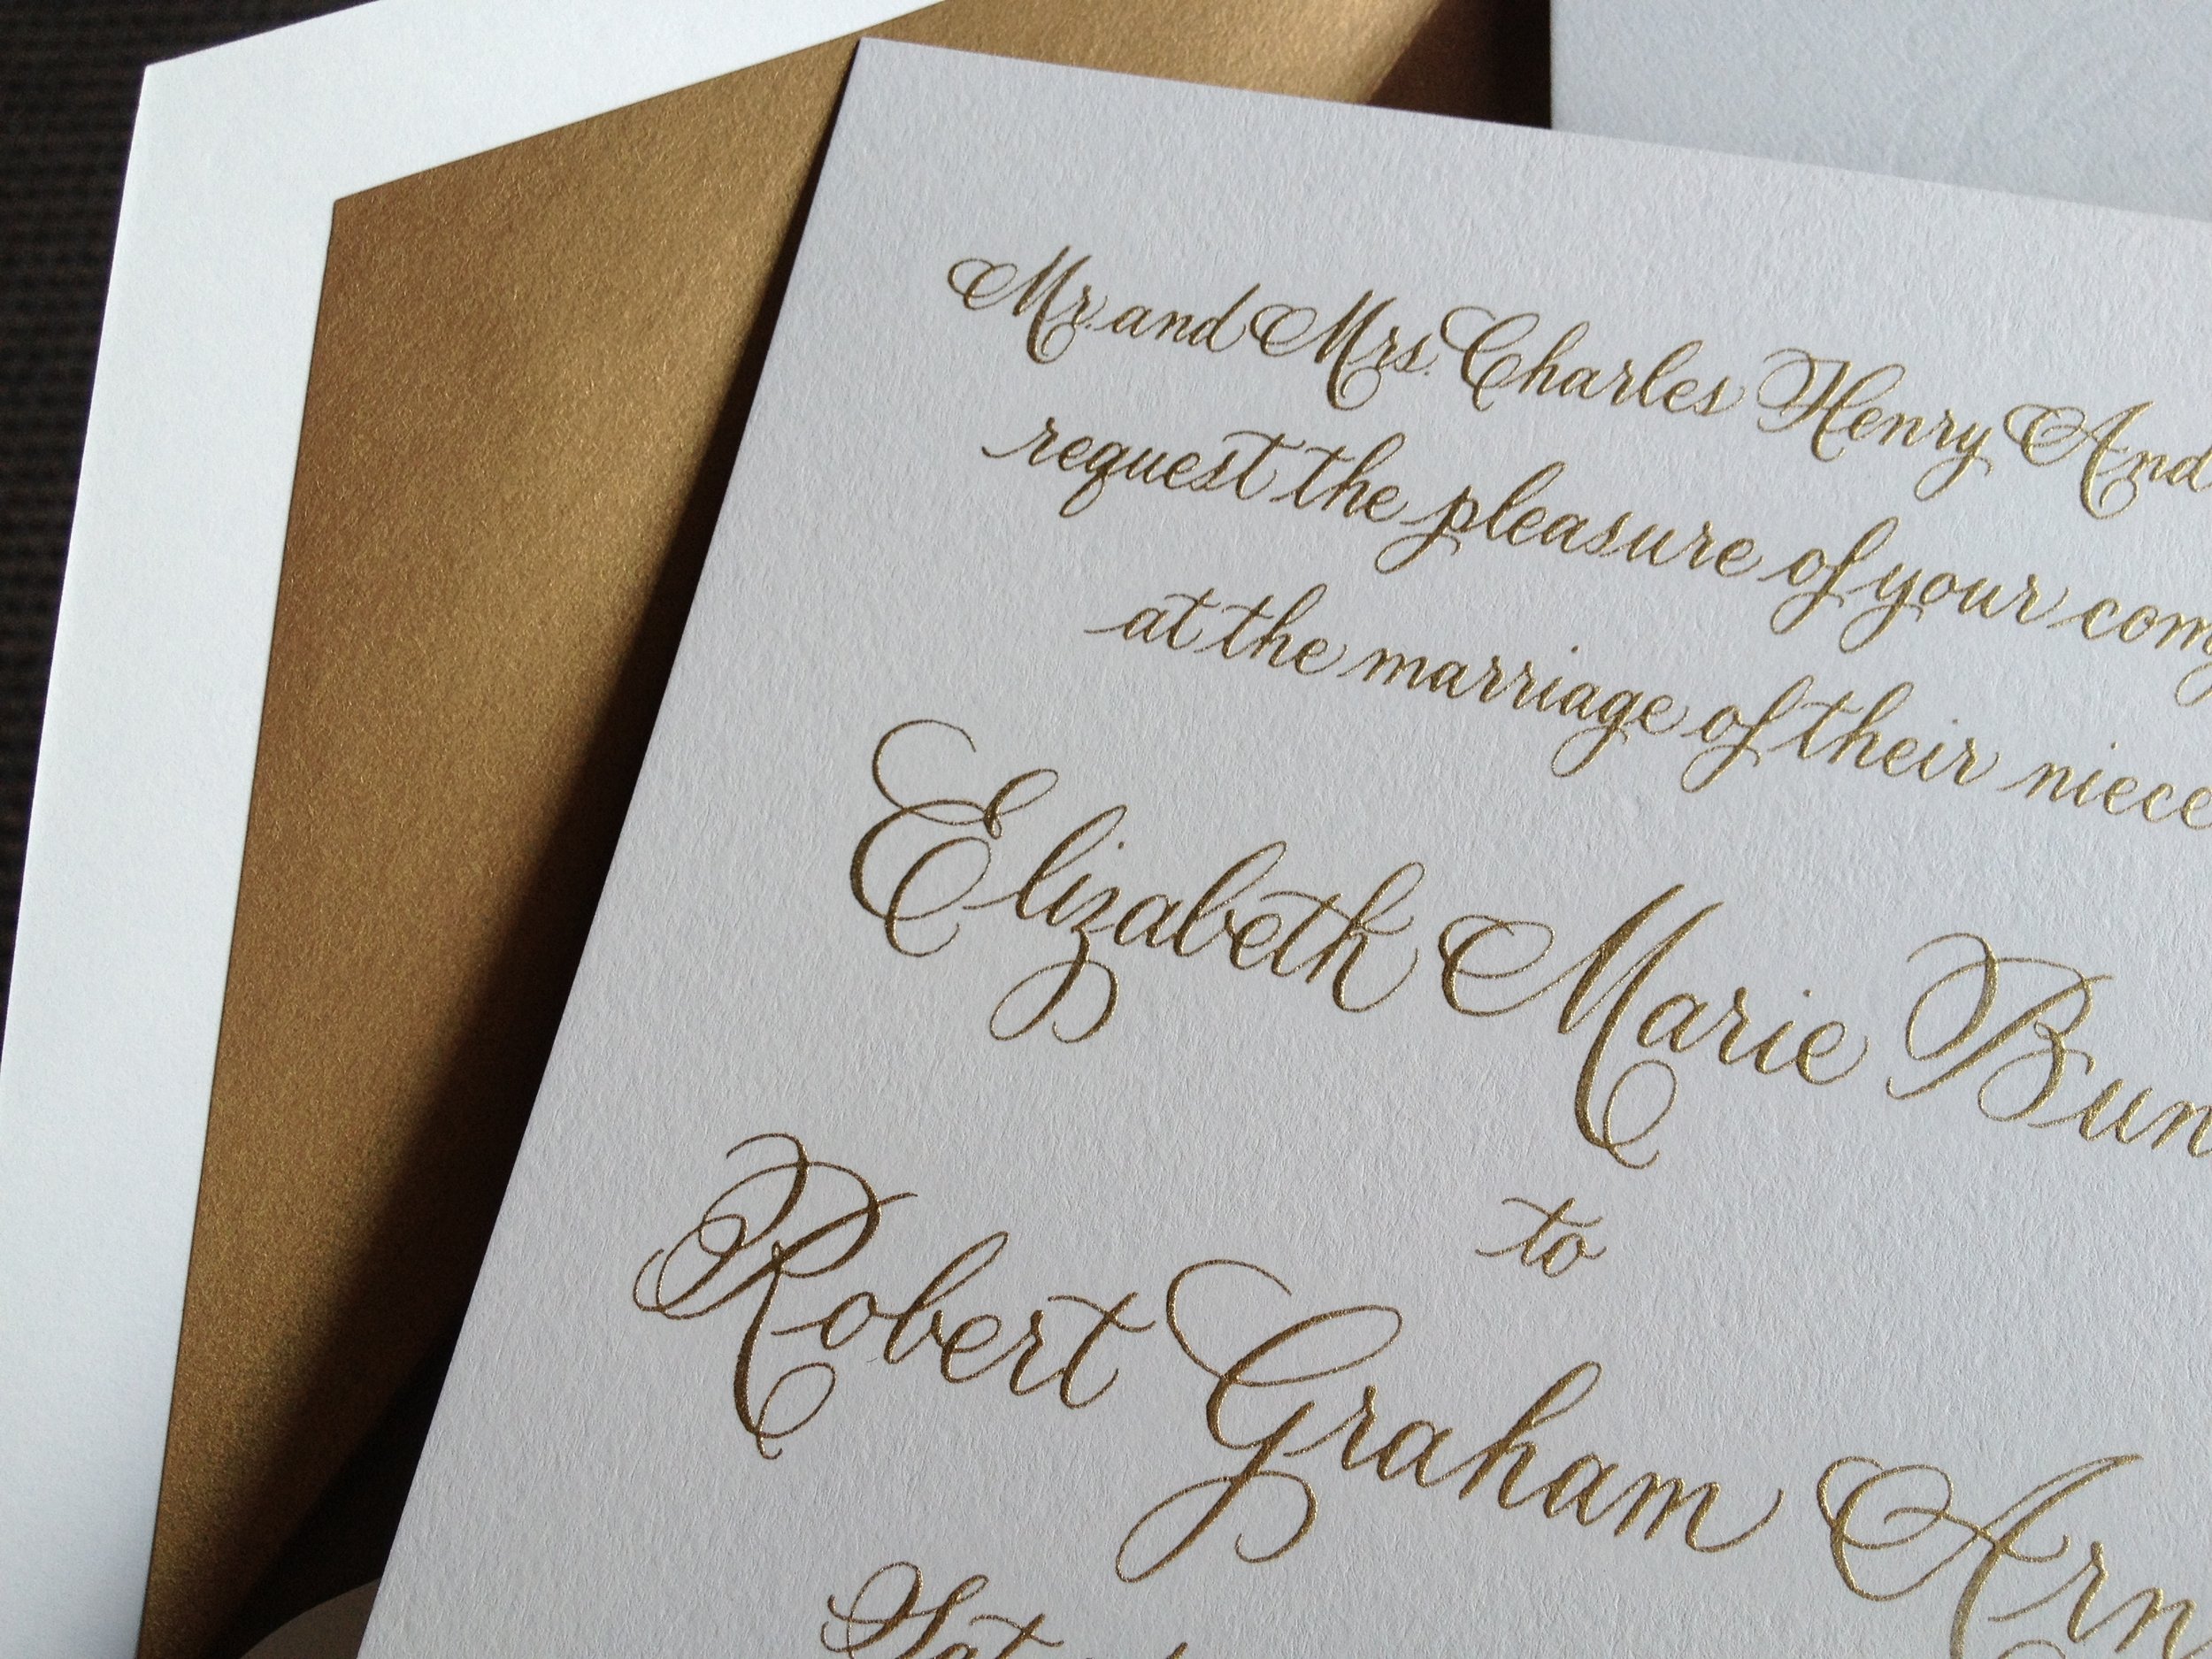 Mr. and Mrs. Charles Henry And
request the pleasure of your com
at the marriage of their niece
Elizabeth Marie Bun
to
Robert Graham Arn
Sat